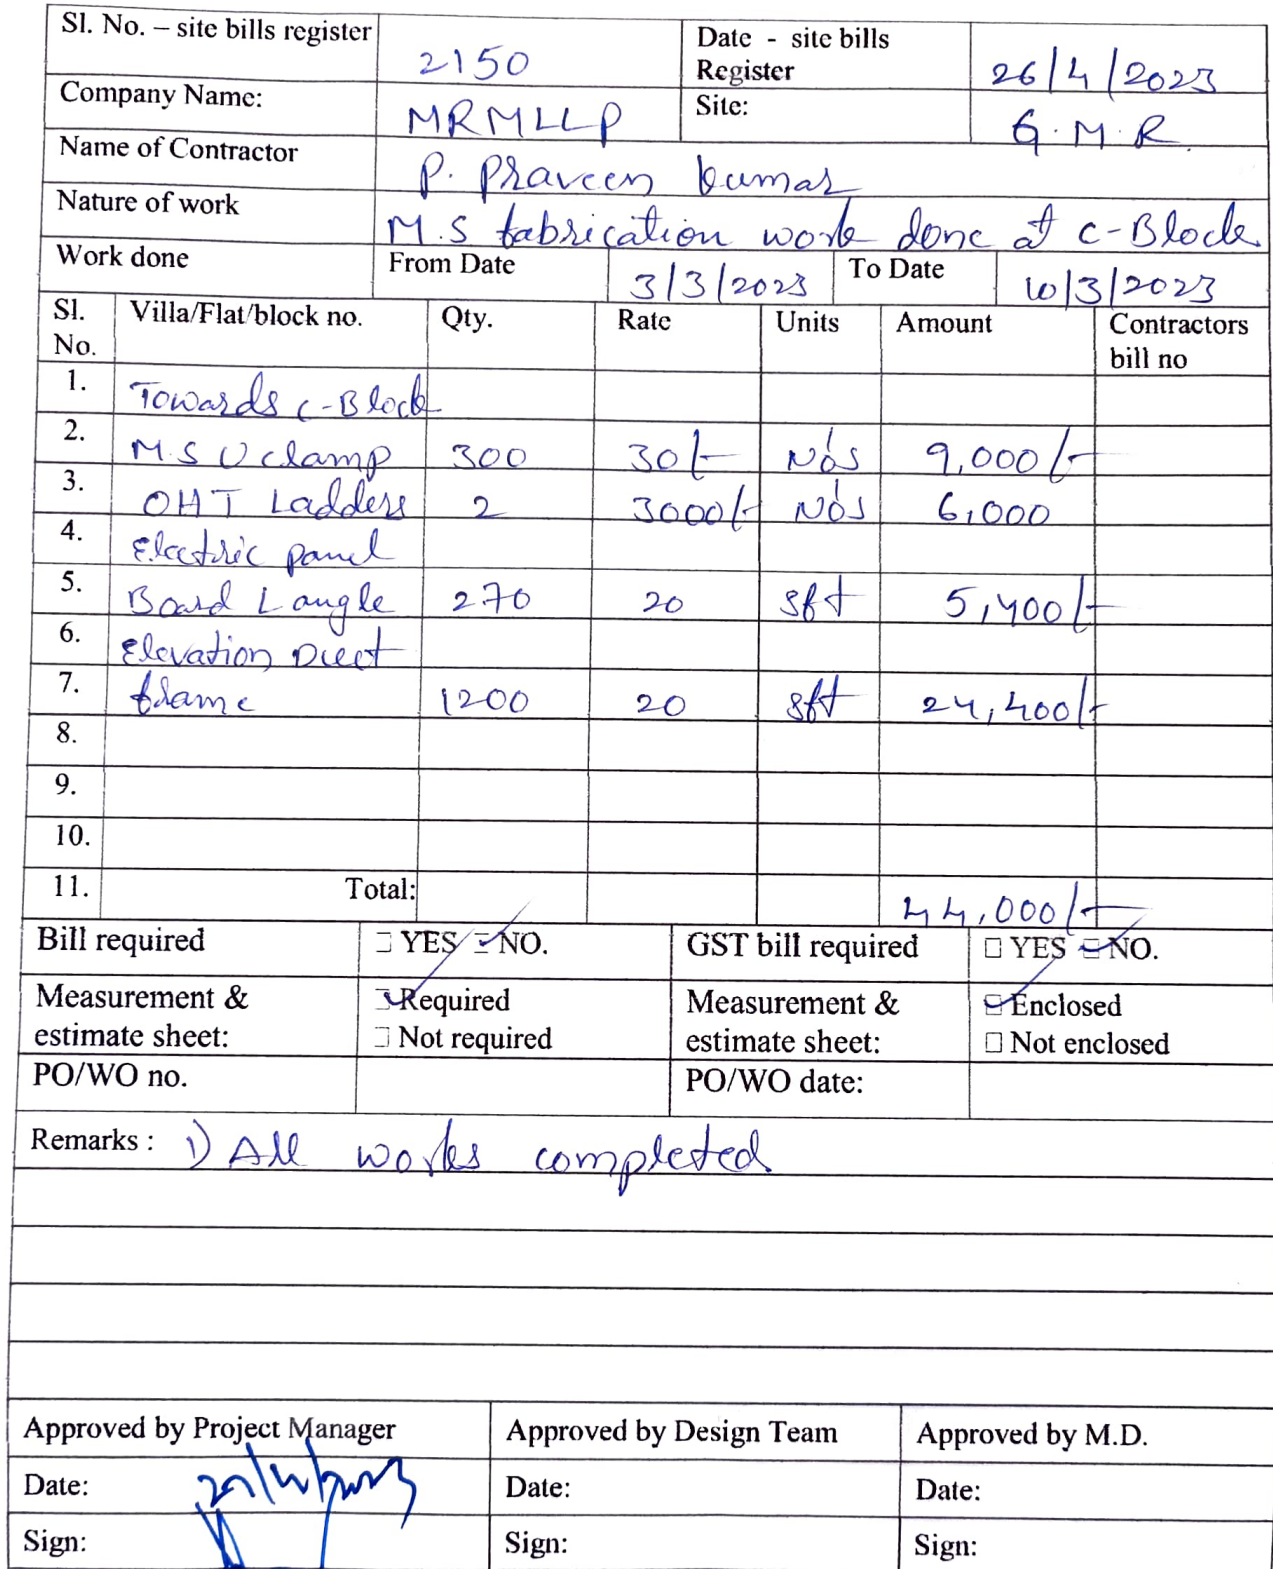 Sl. No. – site bills register 2150 Date - site bills Register 26/4/2023
Company Name: MRMLLP Site: G.M.R.
Name of Contractor P. Praveen kumar
Nature of work M.S fabrication work done at C-Block
Work done From Date 3/3/2023 To Date 10/3/2023
Sl. No. Villa/Flat/block no. Qty. Rate Units Amount Contractors bill no
1. Towards C-Block
2. M.S U clamp 300 30/- Nos 9,000/-
3. OHT Ladders 2 3000/- Nos 6,000
4. Electric panel
5. Board L angle 270 20 sft 5,400/-
6. Elevation Duct
7. frame 1200 20 sft 24,400/-
8.
9.
10.
11. Total: 44,000/-
Bill required □ YES ☑ NO. GST bill required □ YES ☑ NO.
Measurement & estimate sheet: ☑ Required □ Not required Measurement & estimate sheet: ☑ Enclosed □ Not enclosed
PO/WO no. PO/WO date:
Remarks : 1) All works completed
Approved by Project Manager Approved by Design Team Approved by M.D.
Date: Date: Date:
Sign: Sign: Sign: